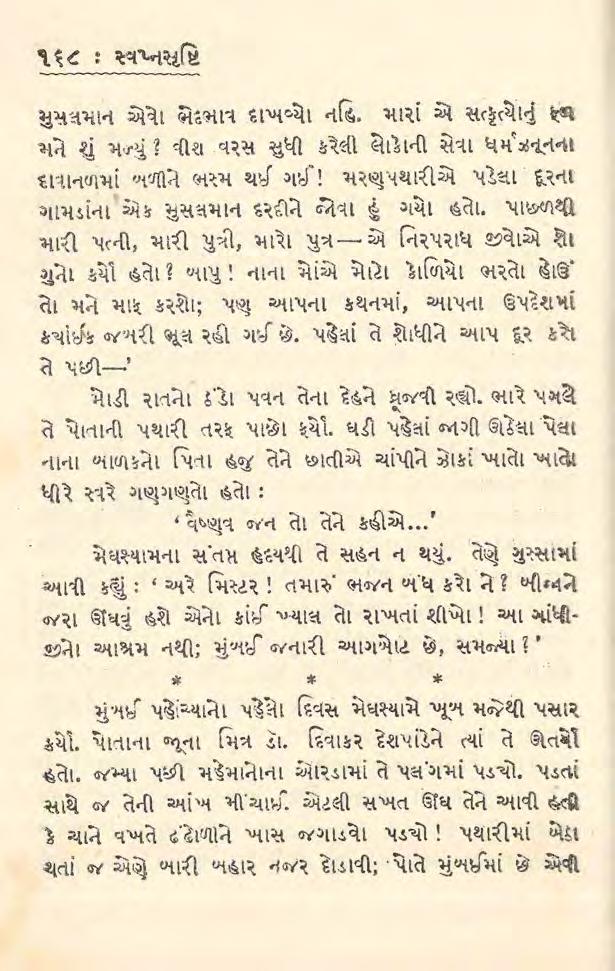 ૧૬૮ : સ્વપ્નસૃષ્ટિ
મુસલમાન એવો ભેદભાવ દાખવ્યો નહિ. મારાં એ સત્કૃત્યોનું ફળ
મને શું મળ્યું? વીશ વરસ સુધી કરેલી લોકોની સેવા ધર્મઝનૂનના
દાવાનળમાં બળીને ભસ્મ થઈ ગઈ! મરણપથારીએ પડેલા દૂરના
ગામડાંના એક મુસલમાન દરદીને જોવા હું ગયો હતો. પાછળથી
મારી પત્ની, મારી પુત્રી, મારો પુત્ર—એ નિરપરાધ જીવોએ શો
ગુનો કર્યો હતો? બાપુ! નાના મોંએ મોટો કોળિયો ભરતો હોઉં
તો મને માફ કરશો; પણ આપના કથનમાં, આપના ઉપદેશમાં
કયાંઈક જબરી ભૂલ રહી ગઈ છે. પહેલાં તે શોધીને આપ દૂર કરો
તે પછી—’
મોડી રાતનો ઠંડો પવન તેના દેહને ધ્રૂજવી રહ્યો. ભારે પગલે
તે પોતાની પથારી તરફ પાછો ફર્યો. ઘડી પહેલાં જાગી ઊઠેલા પેલા
નાના બાળકનો પિતા હજુ તેને છાતીએ ચાંપીને ઝોકાં ખાતો ખાતો
ધીરે સ્વરે ગણગણતો હતો :
‘વૈષ્ણવ જન તો તેને કહીએ...’
મેઘશ્યામના સંતપ્ત હૃદયથી તે સહન ન થયું. તેણે ગુસ્સામાં
આવી કહ્યું : ‘અરે મિસ્ટર! તમારું ભજન બંધ કરો ને? બીજાને
જરા ઊંઘવું હશે એનો કાંઈ ખ્યાલ તો રાખતાં શીખો! આ ગાંધી-
જીનો આશ્રમ નથી; મુંબઈ જનારી આગબોટ છે, સમજ્યા?’
* * *
મુંબઈ પહોંચ્યાનો પહેલો દિવસ મેઘશ્યામે ખૂબ મજેથી પસાર
કર્યો. પોતાના જૂના મિત્ર ડૉ. દિવાકર દેશપાંડેને ત્યાં તે ઊતર્યો
હતો. જમ્યા પછી મહેમાનોના ઓરડામાં તે પલંગમાં પડ્યો. પડતાં
સાથે જ તેની આંખ મીંચાઈ. એટલી સખત ઊંઘ તેને આવી હતી
કે ચાને વખતે ઢંઢોળીને ખાસ જગાડવો પડ્યો! પથારીમાં બેઠા
થતાં જ એણે બારી બહાર નજર દોડાવી; પોતે મુંબઈમાં છે એવી